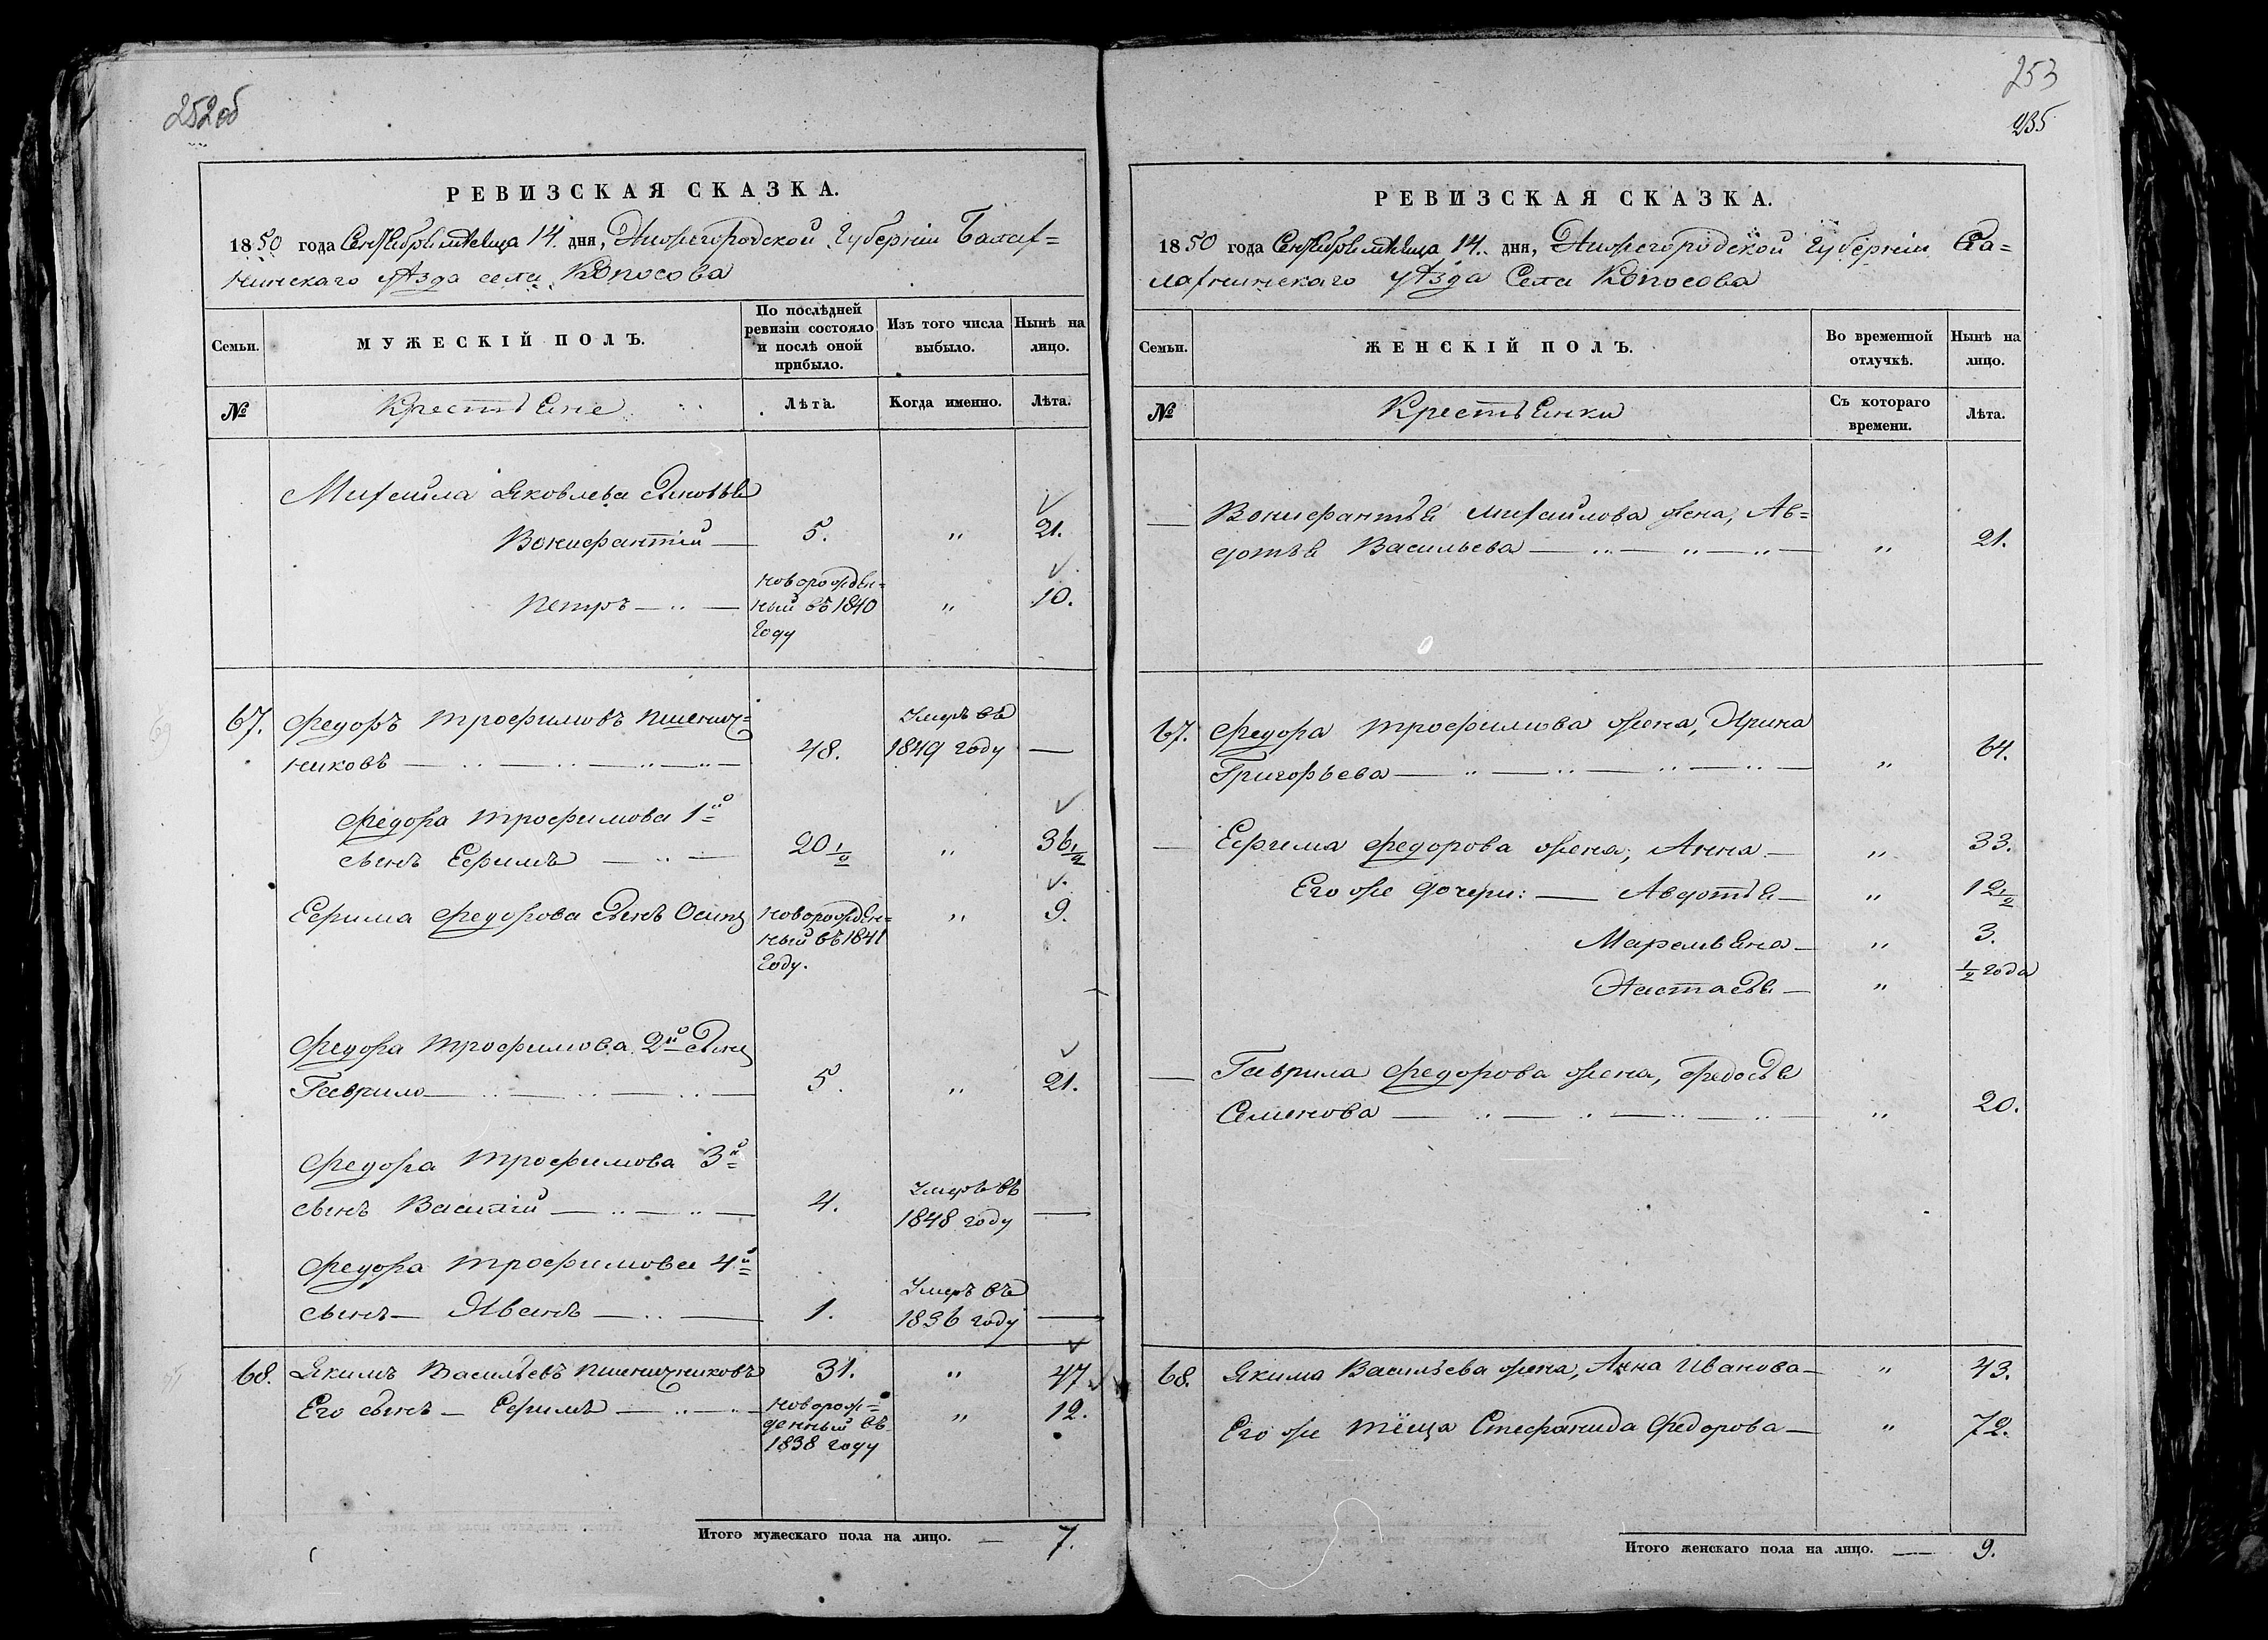 252об
РЕВИЗСКАЯ СКАЗКА.
1850 года Сентября месяца 14. дня, Нижегородской Губернiи Балах=
нинскаго уѣзда села Копосова
Семьи.
МУЖЕСКIЙ ПОЛЪ.
По послѣдней
ревизiи состояло
и послѣ оной
прибыло.
Изъ того числа
выбыло.
Нынѣ на
лицо.
№
Крестьяне
Лѣта.
Когда именно.
Лѣта.
Михаила Яковлева сыновья
Вонифантiй — 5. „ 21.
новорожден=
Петръ — ный въ 1840 „ 10.
году
67. Федоръ Трофимовъ Пшенич= Умеръ въ
никовъ — 48. 1849 году —
Федора Трофимова 1й
сынъ Ефимъ — 20 1/2 „ 36 1/2
Ефима Федорова сынъ Осипъ новорожден= „ 9.
ный въ 1841
году.
Федора Трофимова 2й сынъ
Гаврило — 5. „ 21.
Федора Трофимова 3й
Умеръ въ
сынъ Василiй — 4. 1848 году —
Федора Трофимова 4й
Умеръ въ
сынъ — Иванъ — 1. 1836 году —
68. Якимъ Васильевъ Пшеничниковъ 31. „ 47
Его сынъ — Ефимъ — новорож= „ 12.
денный въ
1838 году
Итого мужескаго пола на лицо. — 7.
253
235
РЕВИЗСКАЯ СКАЗКА.
1850 года Сентября месяца 14. дня, Нижегородской Губернiи Ба=
лахнинскаго уѣзда Села Копосова
Семьи.
ЖЕНСКIЙ ПОЛЪ.
Во временной
отлучкѣ.
Нынѣ на
лицо.
№
Крестьянки
Съ котораго
времени.
Лѣта.
— Вонифантья Михайлова жена, Ав=
дотья Васильева — „ 21.
67. Федора Трофимова жена, Ирина
Григорьева — „ 64.
— Ефима Федорова жена, Анна — „ 33.
Его же дочери: — Авдотья — „ 12 1/2
Маремьяна — „ 3.
Настасья — „ 1/2 года
— Гаврила Федорова жена, Федосья
Семенова — „ 20.
68. Якима Васильева жена, Анна Иванова — „ 43.
Его же тёща Стефанида Федорова — „ 72.
Итого женскаго пола на лицо. — 9.